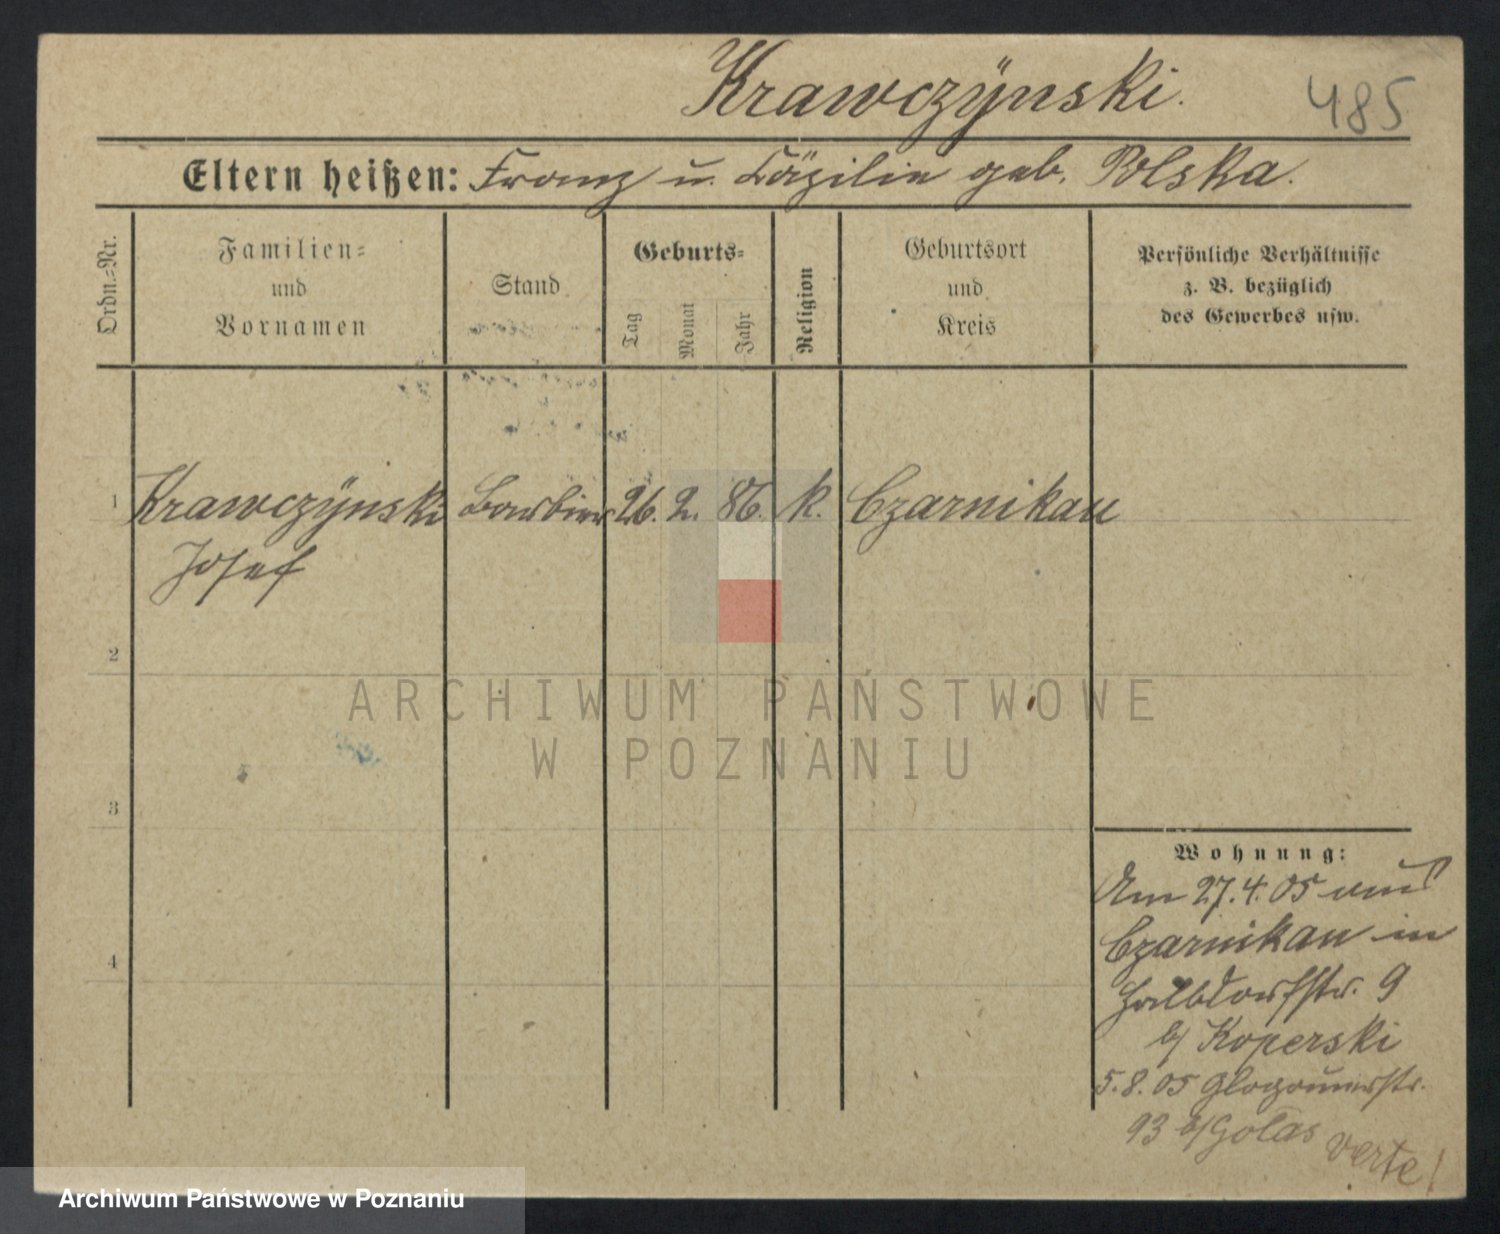 Krawczÿnski.
485
Eltern heißen: Franz u. Cäzilie geb. Polska.
Ordn.-Nr.
Familien-
und
Vornamen
Stand
Geburts-
Tag
Monat
Jahr
Religion
Geburtsort
und
Kreis
Persönliche Verhältnisse
z. B. bezüglich
des Gewerbes usw.
1 Krawczÿnski Barbier 26. 2. 86. k. Czarnikau
Josef
2
3
4
Wohnung:
Am 27.4.05 aus
Czarnikau in
Halbdorfstr. 9
b/ Koperski
5.8.05 Glogauerstr.
93 b/ Golas
verte!
ARCHIWUM PAŃSTWOWE
W POZNANIU
Archiwum Państwowe w Poznaniu